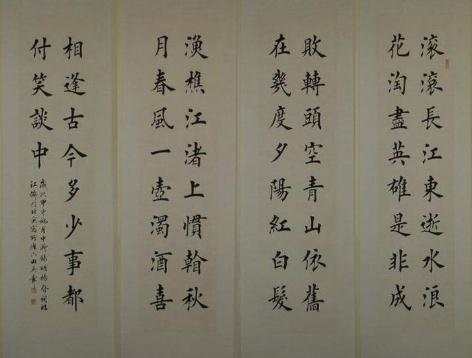 滾滾長江東逝水浪
花淘盡英雄是非成
敗轉頭空青山依舊
在幾度夕陽紅白髮
漁樵江渚上慣翰秋
月春風一壺濁酒喜
相逢古今多少事都
付笑談中
歲次甲申